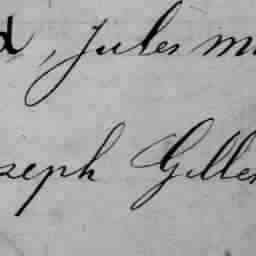 d, Jules M
seph Giller